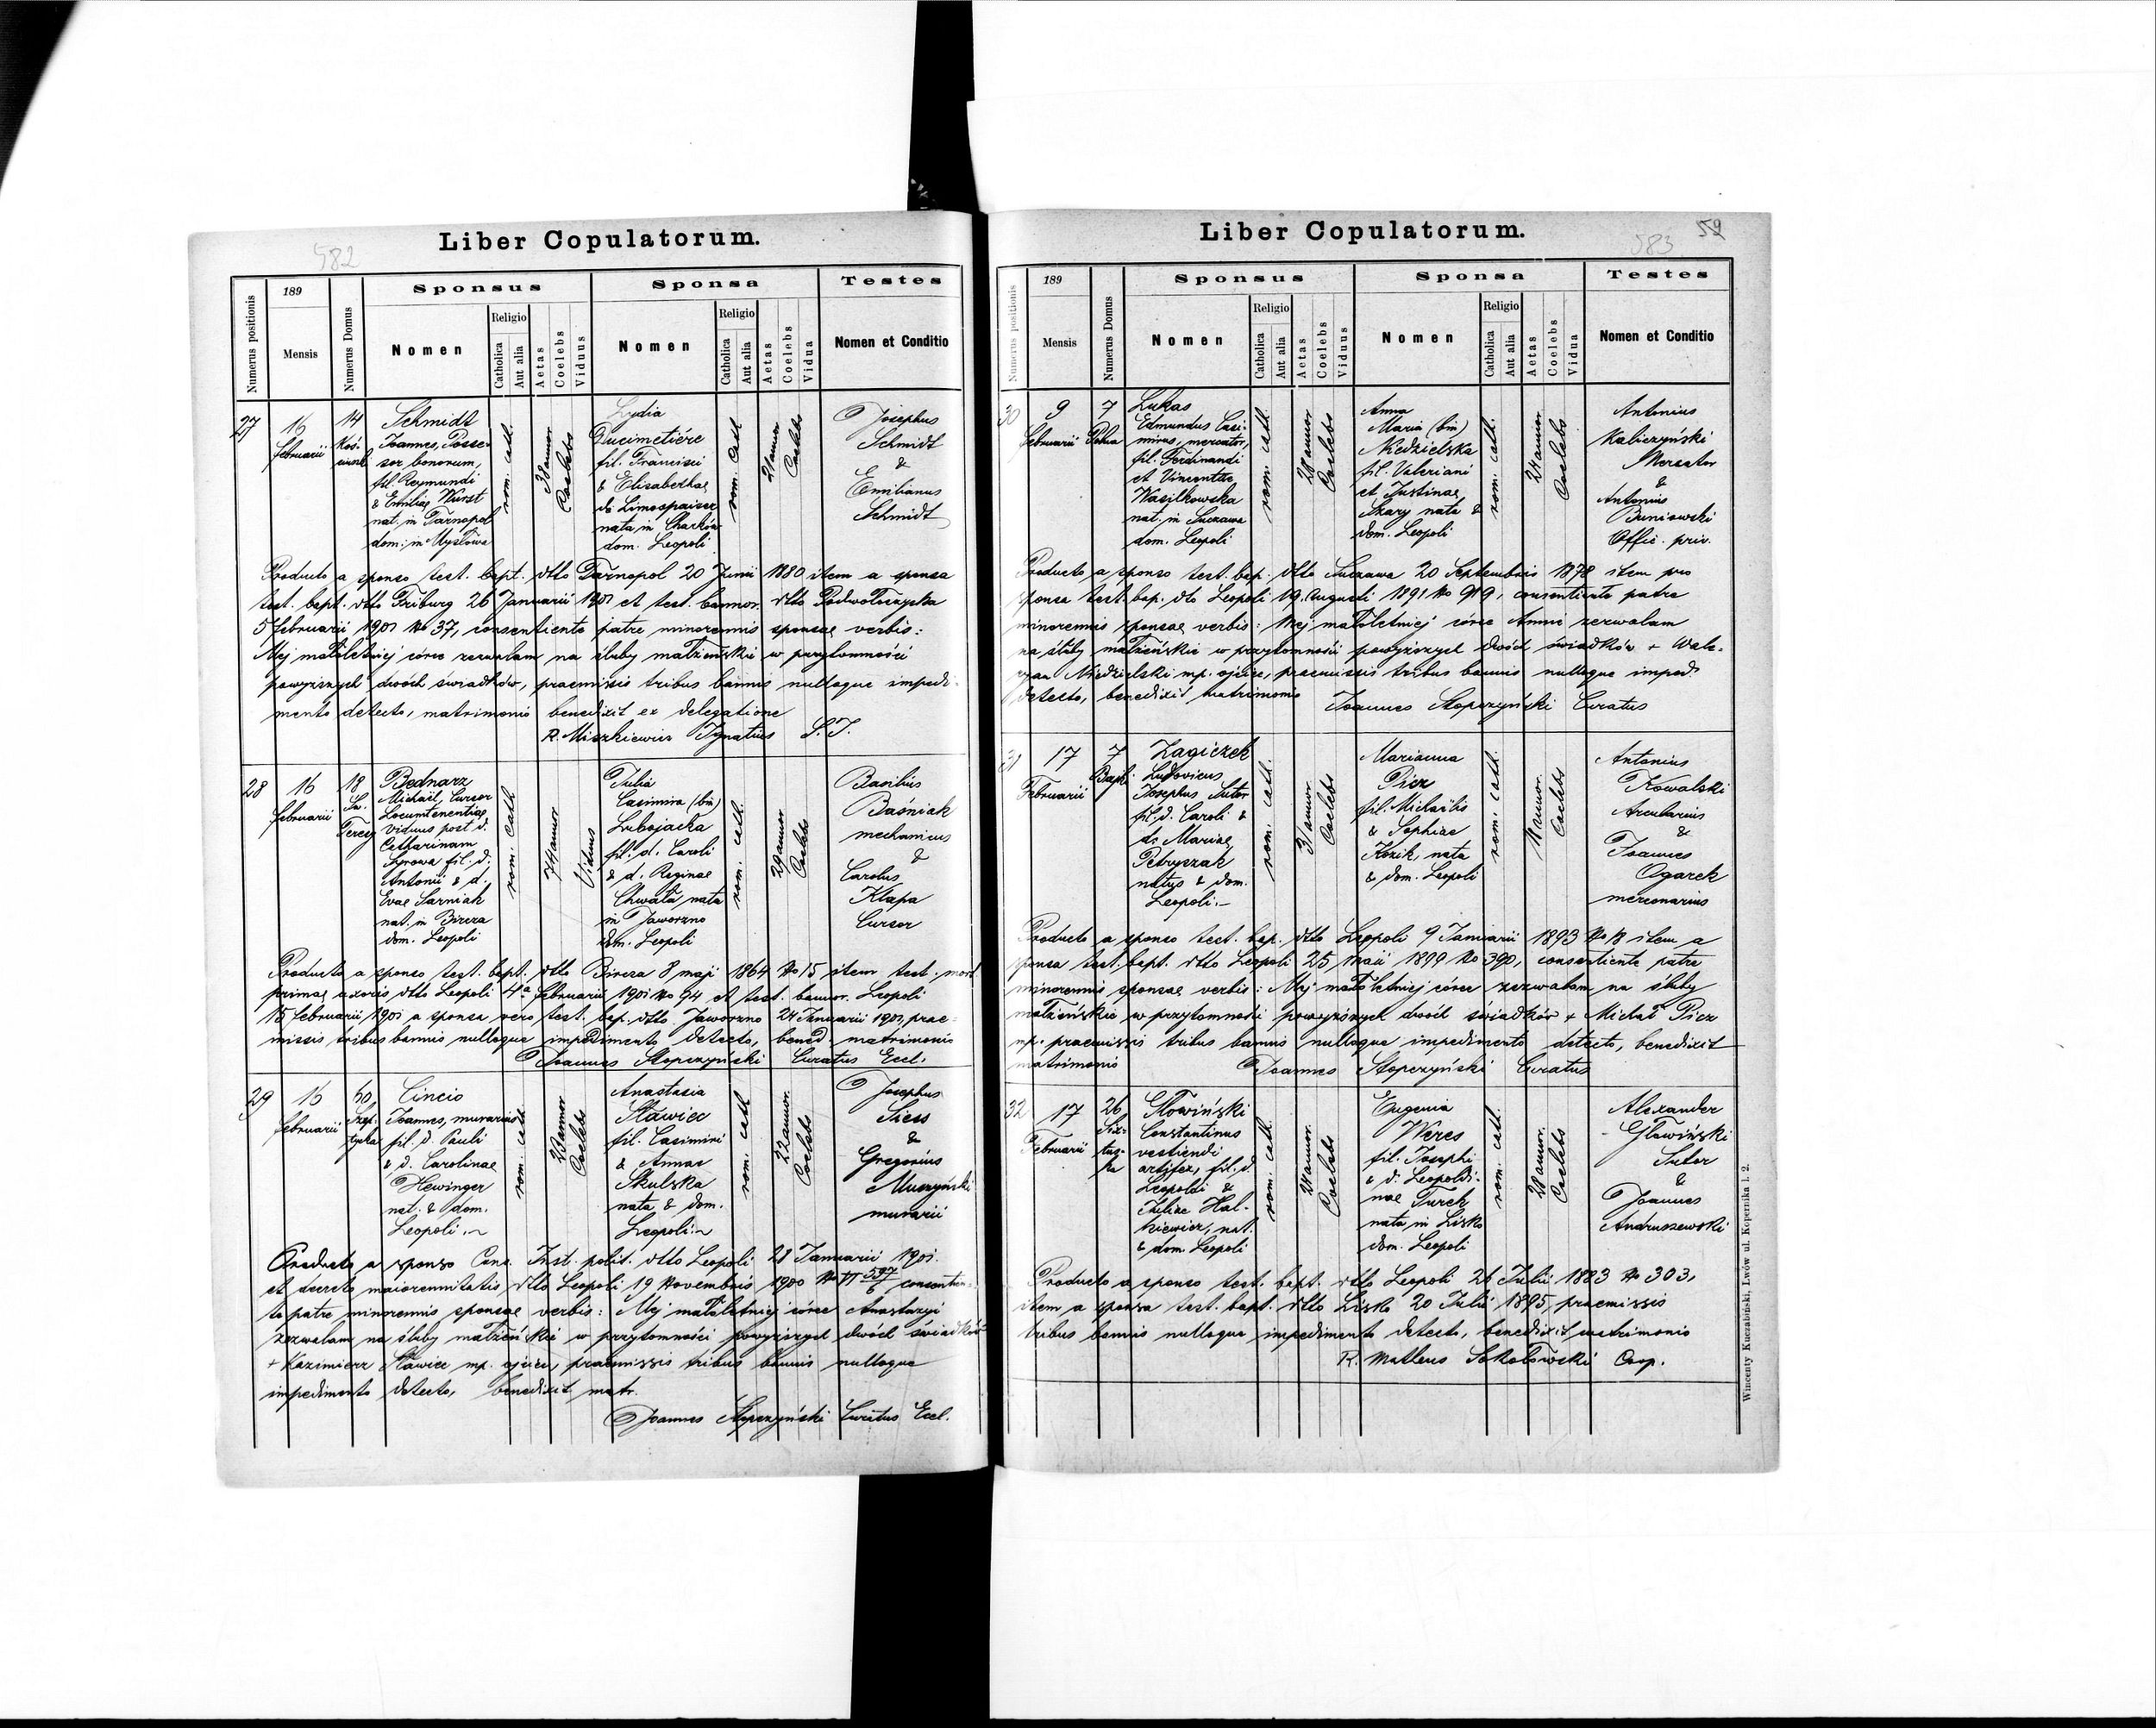 582
Liber Copulatorum.
Numerus positionis
189
Mensis
Numerus Domus
Sponsus
Nomen
Religio
Catholica
Aut alia
Aetas
Coelebs
Viduus
Sponsa
Nomen
Religio
Catholica
Aut alia
Aetas
Coelebs
Vidua
Testes
Nomen et Conditio
27
16
Februarii
14
Schmidt
Joannes, Posse-
sor bonorum,
fil. Reymundi
& Emiliae Wurst
nat. in Tarnopol
dom: in Mysłowa
rom. cath.
38 annor
Coelebs
Lydia
Ducimetiére
fil. Francisci
& Elisabethae
nata in Charków
dom. Leopoli
rom. cath
21 annor
Coelebs
Josephus
Schmidt
&
Emilianus
Schmidt
Producto a sponso test. bapt. dtto Tarnopol 20 Junii 1880 item a sponsa
test. bapt. dtto Friburg 26 Januarii 1901 et test. bannor. dtto Podwołoczyska
5 februarii 1901 No 37, consentiente patre minorennis sponsae verbis:
Mej małoletniej córce zezwalam na śluby małżeńskie w przytomności
powyższych dwóch świadków, praemissis tribus bannis nulloque impedi-
mento detecto, matrimonio benedixit ex delegatione
R. Miszkiewicz Ignatius S.J.
28
16
februarii
18
Św.
Teresy
Bednarz
Michaël, Cursor
Locumtenentiae
viduus post d.
Catharinam
Syrowa fil. d.
Antonii & d.
Evae Sarniak
nat. in Bircza
dom. Leopoli
rom. cath
74 annor
Viduus
Julia
Casimira (bin)
Lubojacka
fil. d. Caroli
& d. Reginae
Chwała nata
in Jaworzno
dom. Leopoli
rom. cath.
29 annor
Coelebs
Basilius
Baśniak
mechanicus
&
Carolus
Kłapa
Cursor
Producto a sponso test. bapt. dtto Bircza 8 maji 1864 No 15 item test. mort.
primae uxoris dtto Leopoli 4a februarii 1901 No 94 et test. bannor. Leopoli
15 februarii 1901 a sponsa vero test. bap. dtto Jaworzno 24 Januarii 1901, prae-
missis tribus bannis nulloque impedimento detecto, bened. matrimonio
Joannes Stopczyński Curatus Eccl.
29
16
februarii
60
Szep-
tycka
Cincio
Joannes, murarius
fil. d. Pauli
& d. Carolinae
Hewinger
nat. & dom.
Leopoli.
rom. cath
23 annor
Coelebs
Anastasia
Stawiec
fil. Casimiri
& Annae
Skulska
nata & dom.
Leopoli.
rom. cath
22 annor.
Coelebs
Josephus
Siess
&
Gregorius
Muczyński
murarii
Producto a sponso Conc. Inst. polit. dtto Leopoli 28 Januarii 1901
et decreto maiorennitatis dtto Leopoli 19 Novembris 1900 No VI 597/6 consentien-
te patre minorennis sponsae verbis: Mej małoletniej córce Anastazyi
zezwalam na śluby małżeńskie w przytomności powyższych dwóch świadków
+ Kazimierz Stawiec mp. ojciec, praemissis tribus bannis nulloque
impedimento detecto, benedixit matr.
Joannes Stopczyński Curatus Eccl.
583
52
Liber Copulatorum.
Numerus positionis
189
Mensis
Numerus Domus
Sponsus
Nomen
Religio
Catholica
Aut alia
Aetas
Coelebs
Viduus
Sponsa
Nomen
Religio
Catholica
Aut alia
Aetas
Coelebs
Vidua
Testes
Nomen et Conditio
30
9
februarii
7
Pełna
Lukas
Edmundus Casi-
mirus, mercator,
fil. Ferdinandi
et Vincentae
Wasilkowska
nat. in Suczawa
dom. Leopoli
rom. cath.
28 annor
Coelebs
Anna
Maria (bin)
Niedzielska
fil. Valeriani
et Justinae
Szary nata &
dom. Leopoli
rom. cath.
24 annor
Coelebs
Antonius
Kaliczyński
Mercator
&
Antonius
Buniowski
Offic. priv.
Producto a sponso test. bap. dtto Suczawa 20 Septembris 1878 item pro
sponsa test. bap. dto Leopoli 19. augusti 1891 No 919, consentiente patre
minorennis sponsae verbis: Mej małoletniej córce Annie zezwalam
na śluby małżeńskie w przytomności powyższych dwóch świadków + Wale-
ryan Niedzielski mp. ojciec, praemissis tribus bannis nulloque imped.
detecto, benedixit matrimonio
Joannes Stopczyński Curatus
31
17
Februarii
7
Zagiczek
Ludovicus
Josephus Sutor
fil. d. Caroli &
d. Mariae
Petryszak
natus & dom.
Leopoli.
rom. cath.
31 annor
Coelebs
Marianna
Picz
fil. Michaëlis
& Sophiae
Kozik, nata
& dom. Leopoli
rom. cath.
18 annor.
Coelebs
Antonius
Kowalski
Arcularius
&
Joannes
Ogarek
mercenarius
Producto a sponso test. bap. dtto Leopoli 9 Januarii 1893 No 18 item a
sponsa test. bapt. dtto Leopoli 25 Maii 1899 No 390, consentiente patre
minorennis sponsae verbis: Mej małoletniej córce zezwalam na śluby
małżeńskie w przytomności powyższych dwóch świadków + Michał Picz
mp. praemissis tribus bannis nulloque impedimento detecto, benedixit
matrimonio
Joannes Stopczyński Curatus
32
17
Februarii
26
Six-
tus-
ka
Słowiński
Constantinus
vestiendi
artifex, fil. d.
Leopoldi &
Juliae Hal-
kiewicz, nat.
& dom. Leopoli
rom. cath.
24 annor.
Coelebs
Eugenia
Weres
fil. Josephi
& d. Leopoldi-
nae Turek
nata in Lisko
dom. Leopoli
rom. cath.
28 annor.
Coelebs
Alexander
Głowiński
Sutor
&
Joannes
Andruszewski
Producto a sponso test. bapt. dtto Leopoli 26 Julii 1883 No 303,
item a sponsa test. bapt. dtto Lisko 20 Julii 1895, praemissis
tribus bannis nulloque impedimento detecto, benedixit matrimonio
R. Matheus Sokołowski Coop.
Wincenty Kuczabiński, Lwów ul. Kopernika l. 2.